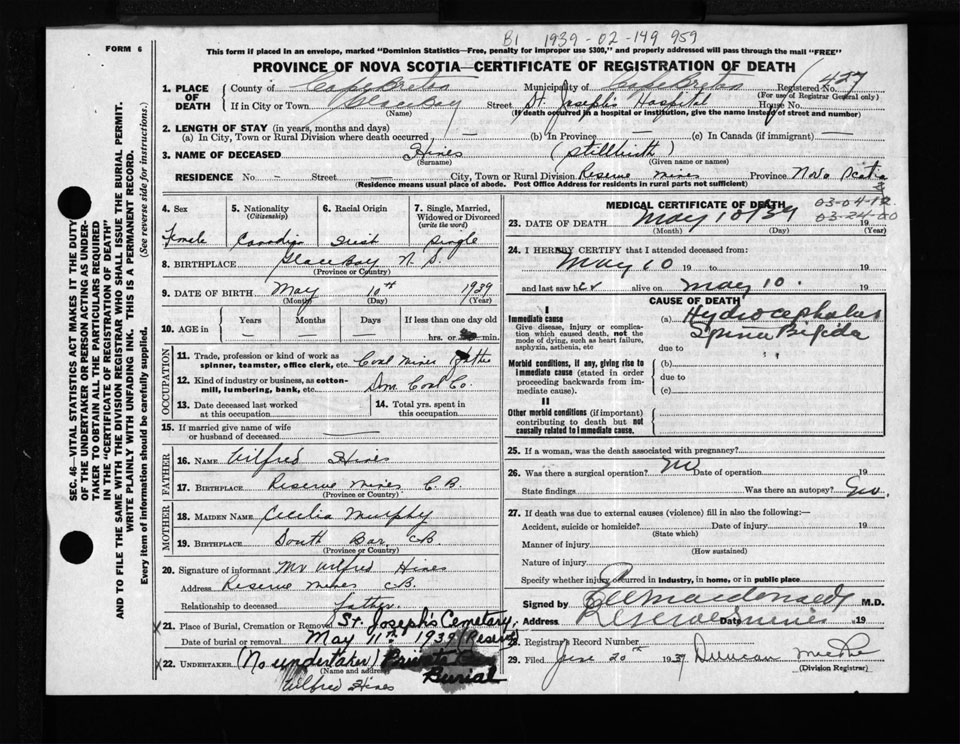 B1 1939-02-149 959
FORM 6
This form if placed in an envelope, marked "Dominion Statistics—Free, penalty for improper use $300," and properly addressed will pass through the mail "FREE"
PROVINCE OF NOVA SCOTIA—CERTIFICATE OF REGISTRATION OF DEATH
1. PLACE OF DEATH County of Cape Breton Municipality of Cape Breton Registered No. 427
(For use of Registrar General only)
If in City or Town Glace Bay Street St. Joseph's Hospital House No.
(Name) (If death occurred in a hospital or institution, give the name instead of street and number)
2. LENGTH OF STAY (in years, months and days)
(a) In City, Town or Rural Division where death occurred — (b) In Province — (c) In Canada (if immigrant) —
3. NAME OF DECEASED Hines (Stillbirth)
(Surname) (Given name or names)
RESIDENCE No. - Street — City, Town or Rural Division Reserve Mines Province Nova Scotia
(Residence means usual place of abode. Post Office Address for residents in rural parts not sufficient)
4. Sex 5. Nationality (Citizenship) 6. Racial Origin 7. Single, Married, Widowed or Divorced (write the word)
Female Canadian Irish Single
8. BIRTHPLACE Glace Bay N. S.
(Province or Country)
9. DATE OF BIRTH May 10th 1939
(Month) (Day) (Year)
10. AGE in Years Months Days If less than one day
— — — hrs. min.
OCCUPATION
11. Trade, profession or kind of work as spinner, teamster, office clerk, etc. Coal Miner Father
12. Kind of industry or business, as cotton-mill, lumbering, bank, etc. Dom. Coal Co.
13. Date deceased last worked at this occupation 14. Total yrs. spent in this occupation
15. If married give name of wife or husband of deceased —
FATHER
16. NAME Wilfred Hines
17. BIRTHPLACE Reserve Mines C.B.
(Province or Country)
MOTHER
18. MAIDEN NAME Cecilia Murphy
19. BIRTHPLACE South Bar, C.B.
(Province or Country)
20. Signature of informant Mr Wilfred Hines
Address Reserve Mines C.B.
Relationship to deceased Father.
21. Place of Burial, Cremation or Removal St. Joseph's Cemetary,
Date of burial or removal May 11th 1939 (Reserve)
22. UNDERTAKER (No undertaker) Private Burial
(Name and address)
Wilfred Hines
MEDICAL CERTIFICATE OF DEATH
03-04-12
03-24-00
23. DATE OF DEATH May 10/39
(Month) (Day) (Year)
24. I HEREBY CERTIFY that I attended deceased from:
May 10 19 to 19
and last saw her alive on May 10. 19
CAUSE OF DEATH
I
Immediate cause
Give disease, injury or complication which caused death, not the mode of dying, such as heart failure, asphyxia, asthenia, etc
(a) Hydrocephalus
Spina Bifida
due to
Morbid conditions, if any, giving rise to immediate cause (stated in order proceeding backwards from immediate cause)
(b)
due to
(c)
II
Other morbid conditions (if important) contributing to death but not causally related to immediate cause.
25. If a woman, was the death associated with pregnancy?
26. Was there a surgical operation? No Date of operation 19
State findings Was there an autopsy? No.
27. If death was due to external causes (violence) fill in also the following:—
Accident, suicide or homicide? Date of injury 19
(State which)
Manner of injury
(How sustained)
Nature of injury
Specify whether injury occurred in industry, in home, or in public place
Signed by Macdonald M.D.
Address Reserve Mines Date 19
28. Registrar's Record Number
29. Filed June 20th 1939 Duncan
(Division Registrar)
SEC. 46—VITAL STATISTICS ACT MAKES IT THE DUTY
OF THE UNDERTAKER OR PERSON ACTING AS UNDER-
TAKER TO OBTAIN ALL THE PARTICULARS REQUIRED
IN THE "CERTIFICATE OF REGISTRATION OF DEATH"
AND TO FILE THE SAME WITH THE DIVISION REGISTRAR WHO SHALL ISSUE THE BURIAL PERMIT.
WRITE PLAINLY WITH UNFADING INK. THIS IS A PERMANENT RECORD.
Every item of information should be carefully supplied. (See reverse side for instructions.)